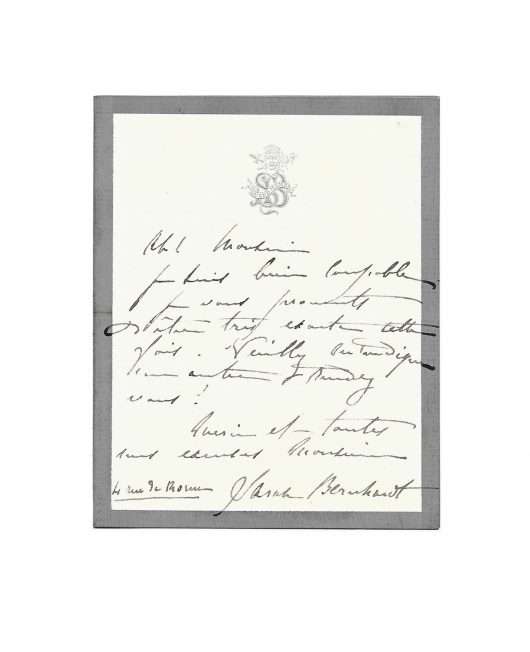 SB
Ah! Monsieur
je suis bien coupable
je vous promets
d'être très exacte cette
fois. Veuillez m'indiquer
un autre Rendez
vous!
Merci et toutes
mes excuses Monsieur
4 rue de Rome Sarah Bernhardt